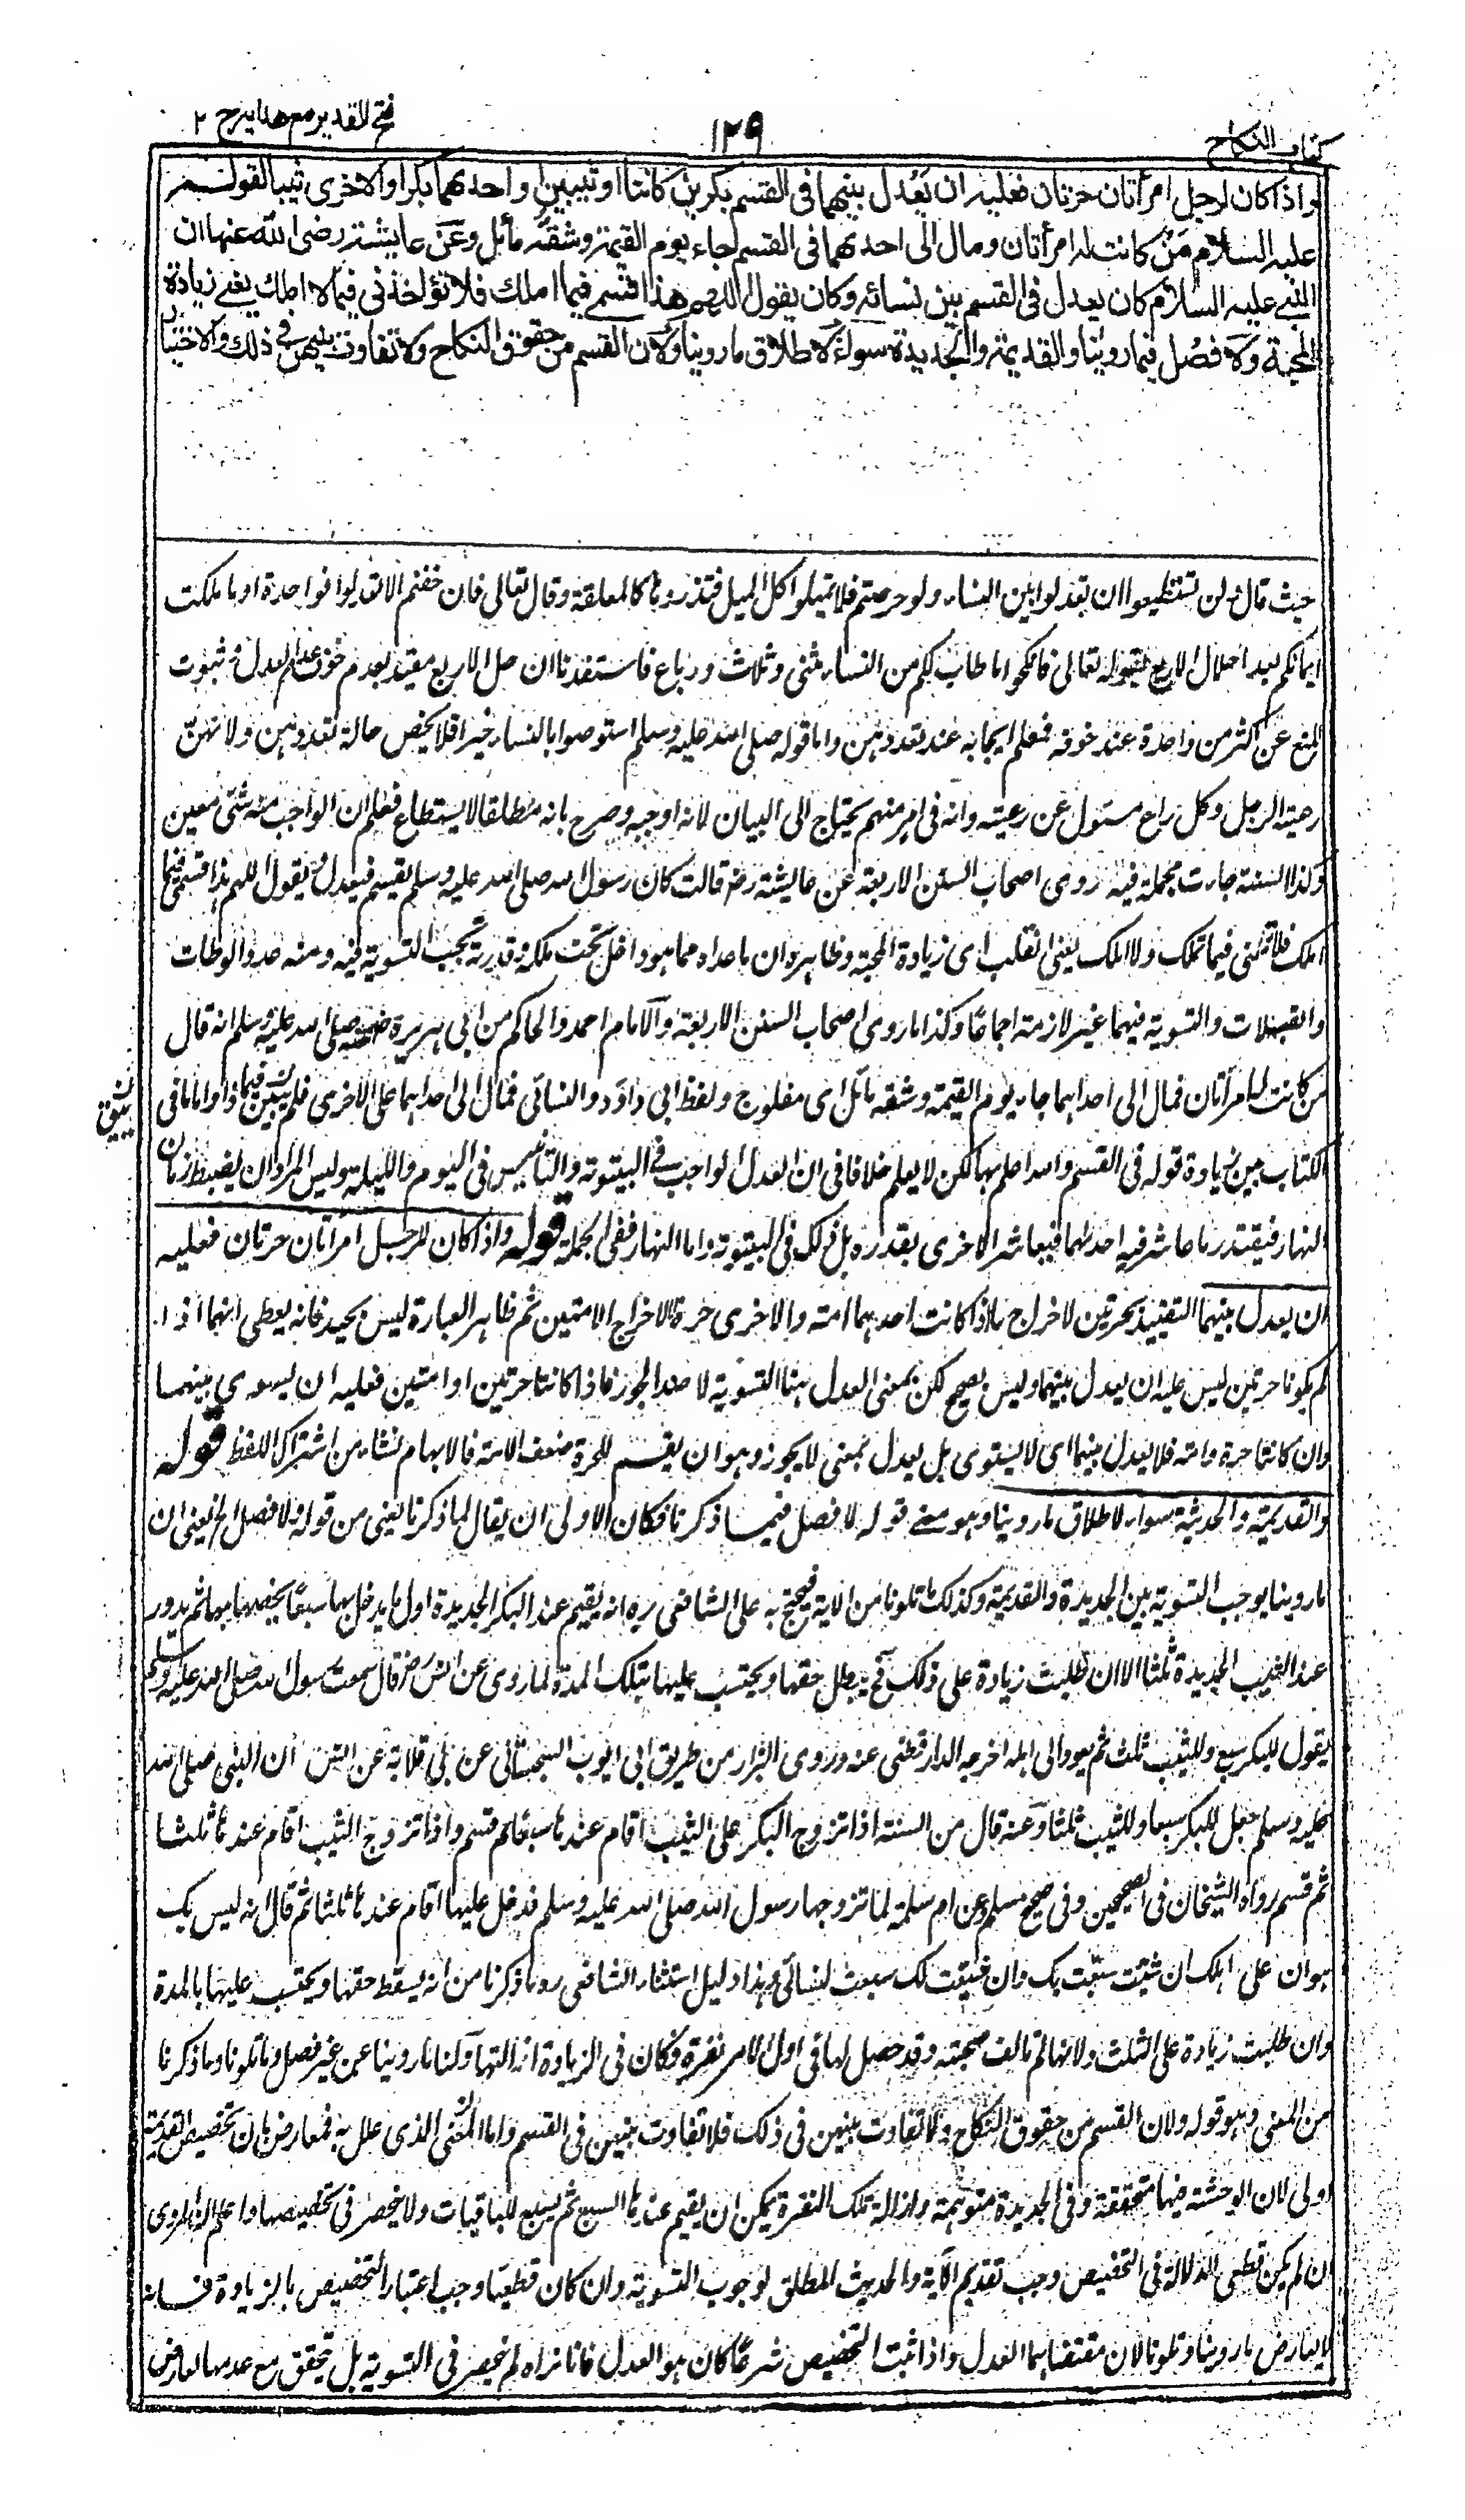 كتاب النكاح
١٢٩
فتح القدير مع هدايه ج ٢
واذا كان لرجل امرأتان حرتان فعليه ان يعدل بينهما فى القسم بكرين كانتا او ثيبين او احدٰهما بكرا والاخرى ثيبا لقوله
عليه السلام من كانت له امرأتان ومال الى احدٰهما فى القسم جاء يوم القيمة وشقه مائل وعن عايشة رضى الله عنها ان
النبي عليه السلام كان يعدل فى القسم بين نسائه وكان يقول اللهم هذا قسمي فيما املك فلا تؤاخذني فيما لا املك يعني زيادة
المحبة ولا فصل فيما روينا والقديمة والجديدة سواء لاطلاق ما روينا ولان القسم من حقوق النكاح ولا تفاوت بينهن في ذلك والاختيار
حيث قال ولن تستطيعوا ان تعدلوا بين النساء ولو حرصتم فلا تميلوا كل الميل فتذروها كالمعلقة وقال تعالى فان خفتم الا تعدلوا فواحدة او ما ملكت
ايمانكم بعد احلال الاربع بقوله تعالى فانكحوا ما طاب لكم من النساء مثنى وثلاث ورباع فاستفدنا ان حل الاربع مقيد بعدم خوف عدم العدل وثبوت
المنع عن اكثر من واحدة عند خوفه فعلم ايجابه عند تعددهن واما قوله صلى الله عليه وسلم استوصوا بالنساء خيرا فلا يخص حالة تعددهن ولانهن
رعية الرجل وكل راع مسئول عن رعيته وانه فى امر مبهم يحتاج الى البيان لانه اوجبه وصرح بانه مطلقا لا يستطاع فعلم ان الواجب منه شئ معين
وكذا السنة جاءت مجملة فيه روى اصحاب السنن الاربعة عن عايشة رضـ قالت كان رسول الله صلى الله عليه وسلم يقسم فيعدل ويقول اللهم هذا قسمي فيما
املك فلا تلمني فيما تملك ولا املك يعني القلب اى زيادة المحبة وظاهره ان ما عداه مما هو داخل تحت ملكه وقدرته تجب التسوية فيه ومنه عدد الوطات
والقبلات والتسوية فيهما غير لازمة اجماعا وكذا ما روى اصحاب السنن الاربعة والامام احمد والحاكم من ابى هريرة رضـ عنه صلى الله عليه وسلم انه قال
من كانت له امرأتان فمال الى احداهما جاء يوم القيمة وشقه مائل اى مفلوج ولفظ ابى داؤد والنسائى فمال الى احداهما على الاخرى فلم يبين فيما ذا واما ما فى
الكتاب من زيادة قوله فى القسم والله اعلم بها لكن لا يعلم خلافا فى ان العدل الواجب فى البيتوتة والتانيس فى اليوم والليلة وليس المراد ان يضبط زمان
النهار فبقدر ما عاشر فيه احداهما فيعاشر الاخرى بقدره بل ذلك فى البيتوتة واما النهار ففى الجملة قوله واذا كان للرجل امرأتان حرتان فعليه
ان يعدل بينهما التقييد بحرتين لاخراج ما اذا كانت احدٰهما امة والاخرى حرة لا لاخراج الامتين ثم ظاهر العبارة ليس بجيد فانه يعطى انهما اذا
لم يكونا حرتين ليس عليه ان يعدل بينهما وليس بصحيح لكن بمعنى العدل هنا التسوية لا ضد الجور فاذا كانتا حرتين او امتين فعليه ان يسوى بينهما
وان كانتا حرة وامة فلا يعدل بينهما اى لا يستوى بل يعدل بمعنى لا يجوز وهو ان يقسم للحرة ضعف الامة فالابهام نشاء من اشتراك اللفظ قوله
والقديمة والحديثة سواء لاطلاق ما روينا وهو معنى قوله لا فصل فيما ذكرنا فكان الاولى ان يقال لما ذكرنا يعني من قوله ولا فصل الخ يعني ان
ما روينا يوجب التسوية بين الجديدة والقديمة وكذلك ما تلونا من الاية فيحتج به على الشافعى ره انه يقيم عند البكر الجديدة اول ما يدخل بها سبعا يخصها بها ثم يدور
عند الثيب الجديدة ثلثا الا ان طلبت زيادة على ذلك فح يبطل حقها ويحتسب عليها بتلك المدة لما روى عن انس رضـ قال سمعت رسول الله صلى الله عليه وسلم
يقول للبكر سبع وللثيب ثلث ثم يعود الى اهله اخرجه الدارقطنى عنه وروى البزار من طريق ابى ايوب السجستانى عن ابى قلابة عن انس ان النبى صلى الله
عليه وسلم جعل للبكر سبعا وللثيب ثلثا وعنه قال من السنة اذا تزوج البكر على الثيب اقام عندها سبعا ثم قسم واذا تزوج الثيب اقام عندها ثلثا
ثم قسم رواه الشيخان فى الصحيحين وفى صحيح مسلم عن ام سلمة لما تزوجها رسول الله صلى الله عليه وسلم فدخل عليها اقام عندها ثلثا ثم قال انه ليس بك
هوان على اهلك ان شئت سبعت بك وان سبعت لك سبعت لنسائى وهذا دليل استثناء الشافعى ره ما ذكرنا من انه يسقط حقها ويحتسب عليها بالمدة
وان طلبت زيادة على الثلث ولانها لم تالف صحبته وقد حصل لها فى اول الامر نفرة فكان فى الزيادة ازالتها ولنا ما روينا من غير فصل وما تلونا وما ذكرنا
من المعنى وهو قوله ولان القسم من حقوق النكاح ولا تفاوت بينهن فى ذلك فلا تفاوت بينهن فى القسم واما المعنى الذى علل به فمعارض بان تخصيص القديمة
اولى لان الوحشة فيها متحققة وفى الجديدة متوهمة وازالة تلك النفرة يمكن ان يقيم عندها السبع ثم يسبع للباقيات ولا ينحصر فى تخصيصها واعلم ان المروى
ان لم يكن قطعى الدلالة فى التخصيص وجب تقديم الآية والحديث المطلق لوجوب التسوية وان كان قطعيا وجب اعتبار التخصيص بالزيادة فانه
لا يعارض ما روينا وتلونا لان مقتضاهما العدل واذا ثبت التخصيص شرعا كان هو العدل فانا نراه لم ينحصر فى التسوية بل تحقق مع عدمها لعارض